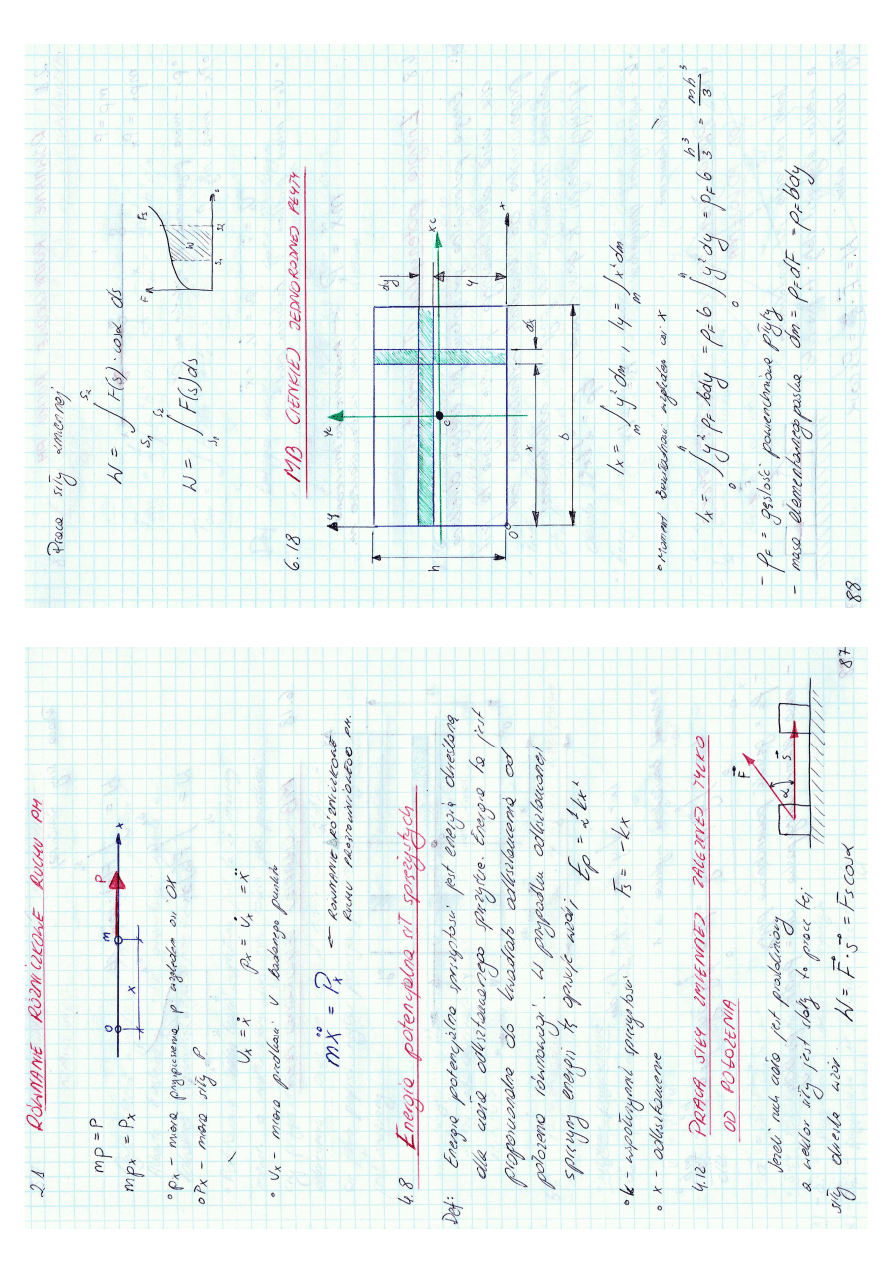 2.1 RÓWNANIE RÓŻNICZKOWE RUCHU PM
O m P x
x
mp = P
mpx = Px
° px - miara przyspieszenia p względem osi OX
° Px - miara siły P
Vx = ẋ px = V̇x = ẍ
° Vx - miara prędkości V badanego punktu
mẍ = Px ← RÓWNANIE RÓŻNICZKOWE
RUCHU PROSTOLINIOWEGO PM.
4.8 Energia potencjalna sił sprężystych
Def: Energia potencjalna sprężystości jest energią określoną
dla ciała odkształcanego sprężyście. Energia ta jest
proporcjonalna do kwadratu odkształcenia od
położenia równowagi. W przypadku odkształconej
sprężyny energię tę opisuje wzór; Ep = ½kx²
° k - współczynnik sprężystości Fs = -kx
° x - odkształcenie
4.12 PRACA SIŁY ZMIENNEJ ZALEŻNEJ TYLKO
OD POŁOŻENIA
Jeżeli ruch ciała jest prostoliniowy
a wektor siły jest stały to pracę tej
siły określa wzór. W = F⃗·s⃗ = Fs cosα
F⃗
α
s⃗
87
Praca siły zmiennej
W = ∫ F(s)·cosα ds
s₁ s₂
W = ∫ F(s)ds
s₁ s₂
F Fs
W
s₁ s₂ s
6.18 MB CIENKIEJ JEDNORODNEJ PŁYTY
y yc
dy
h c xc
y
x dx
O x
b
Ix = ∫ y²dm , Iy = ∫ x²dm
m m
° Moment bezwładności względem osi x
Ix = ∫ y² ρF bdy = ρF b ∫ y²dy = ρF b h³/3 = mh³/3
0 h 0 h
- ρF = gęstość powierzchniowa płyty
- masa elementarnego paska dm = ρF dF = ρF bdy
88